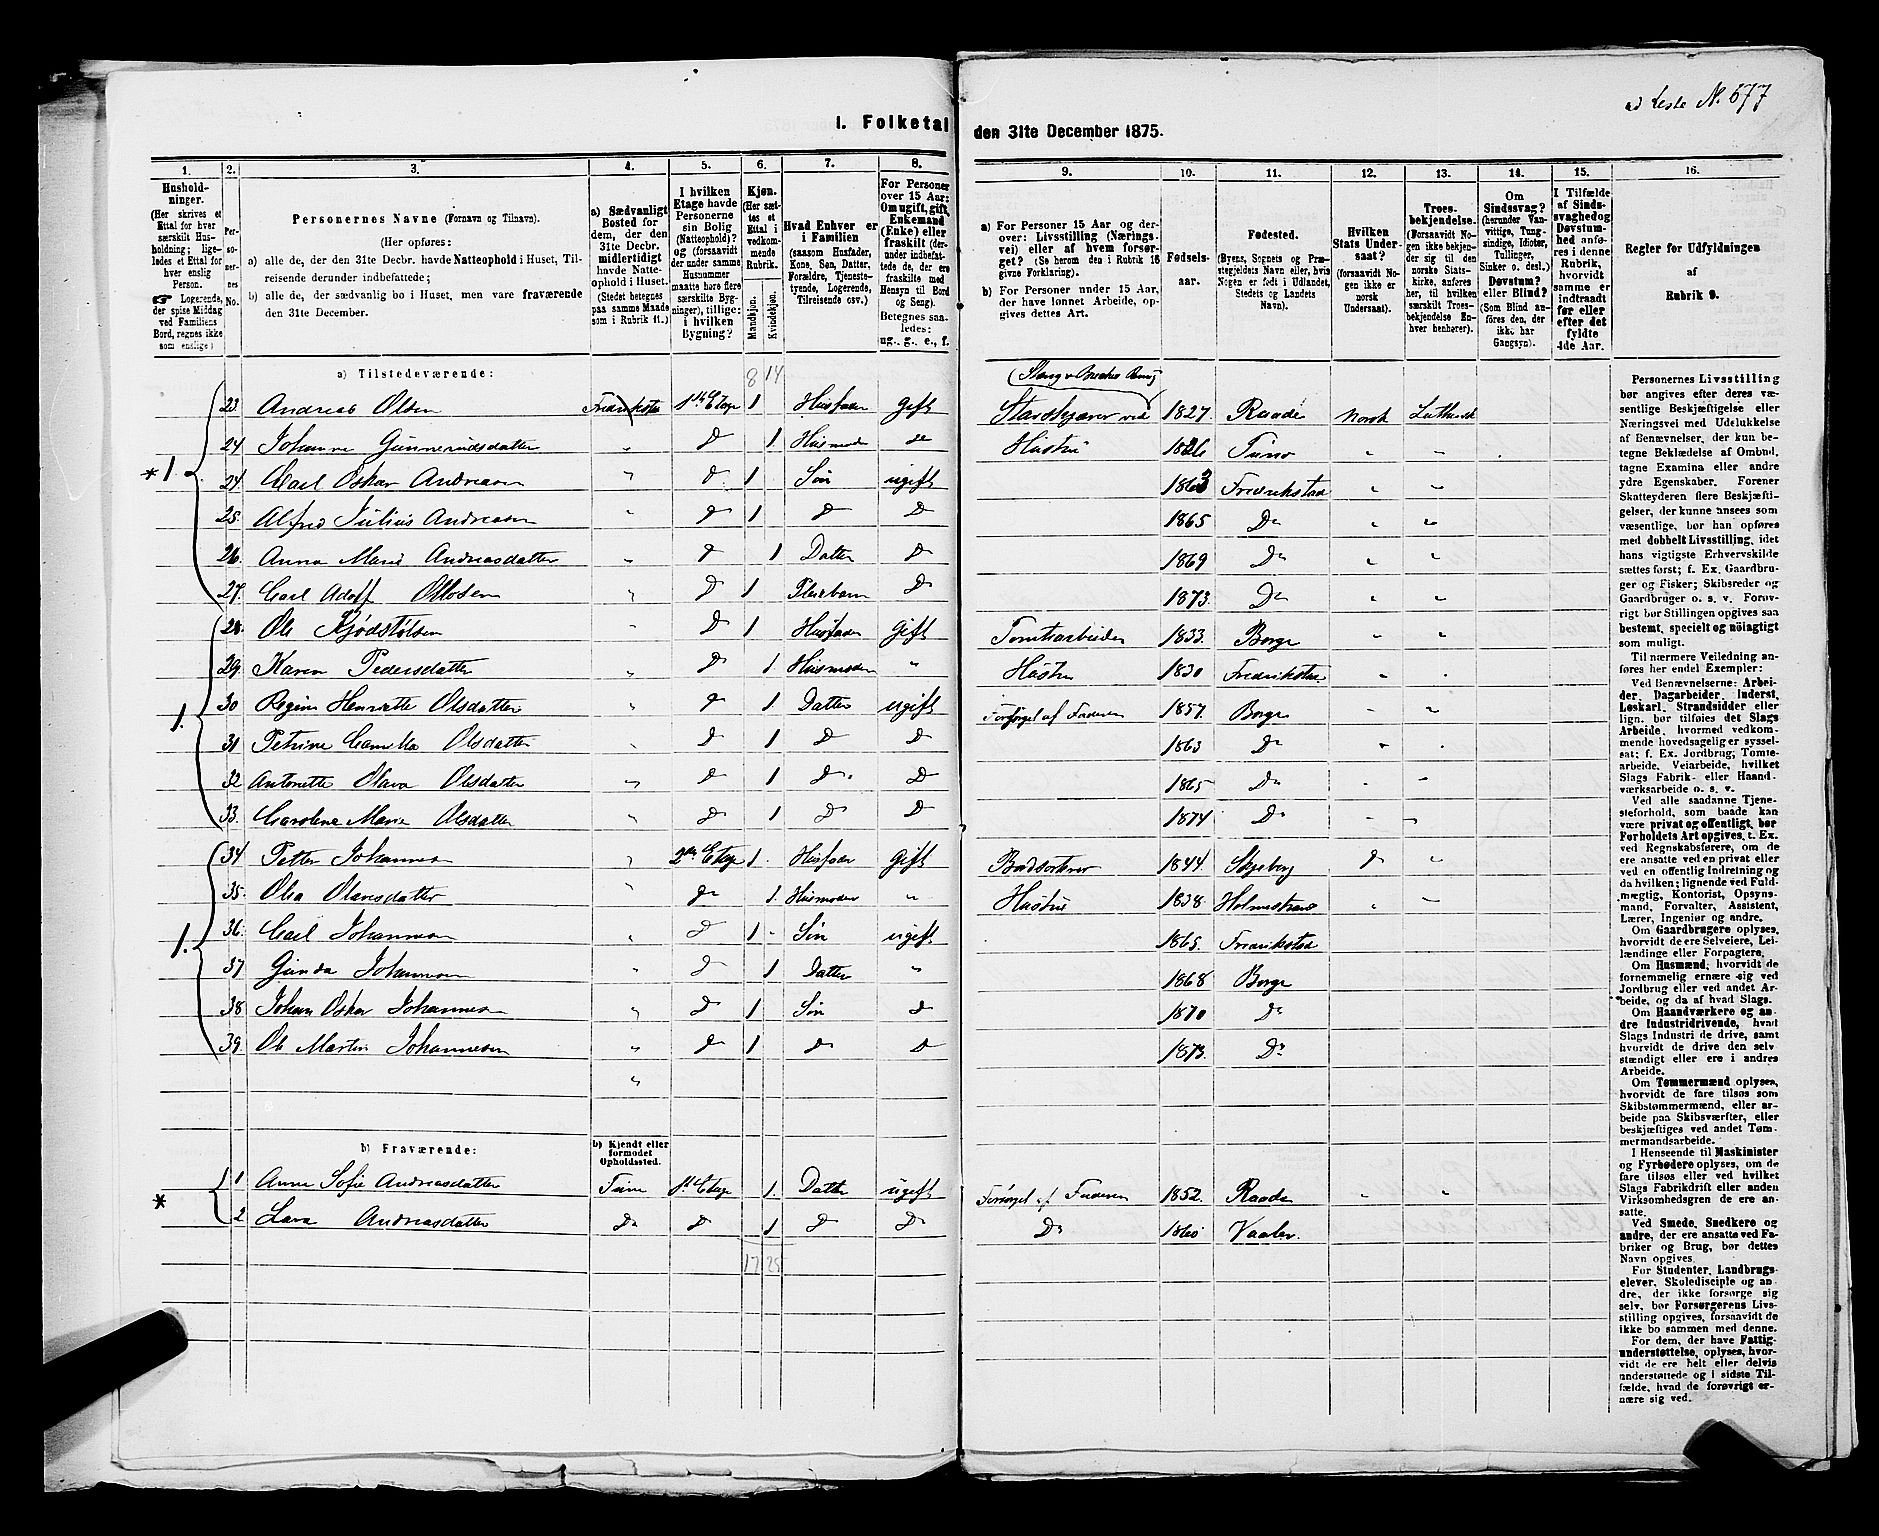 ad Liste N. 677
I. Folketal den 31te December 1875.
1. 2. 3. 4. 5. 6. 7. 8. 9. 10. 11. 12. 13. 14. 15. 16.
Hushold-
ninger.
(Her skrives et
Ettal for hver
særskilt Hus-
holdning; lige-
ledes et Ettal for
hver enslig
Person.
☞ Logerende,
der spise Middag
ved Familiens
Bord, regnes ikke
som enslige)
Per-
so-
ner-
nes
No.
Personernes Navne (Fornavn og Tilnavn).
(Her opføres:
a) alle de, der den 31te Decbr. havde Natteophold i Huset, Til-
reisende derunder indbefattede;
b) alle de, der sædvanlig bo i Huset, men vare fraværende
den 31te December.
a) Sædvanligt
Bosted for
dem, der den
31te Decbr.
midlertidigt
havde Natte-
ophold i Huset.
(Stedet betegnes
paa samme Maade
som i Rubrik 11.)
I hvilken
Etage havde
Personerne
sin Bolig
(Natteophold)?
(forsaavidt
der under samme
Husnummer
maatte høre flere
særskilte Byg-
ninger), tillige:
i hvilken
Bygning?
Kjøn.
(Her sæt-
tes et
Ettal i
vedkom-
mende
Rubrik.
Mandkjøn.
Kvindekjøn.
Hvad Enhver er
i Familien
(saasom Husfader,
Kone, Søn, Datter,
Forældre, Tjeneste-
tyende, Logerende,
Tilreisende osv.)
For Personer
over 15 Aar:
Om ugift, gift,
Enkemand
(Enke) eller
fraskilt (der-
under indbefat-
tede de, der ere
fraskilte med
Hensyn til Bord
og Seng).
Betegnes saa-
ledes:
ug., g., e., f.
a) For Personer 15 Aar og der-
over: Livsstilling (Nærings-
vei) eller af hvem forsør-
get? (Se herom den i Rubrik 16
givne Forklaring).
b) For Personer under 15 Aar,
der have lønnet Arbeide, op-
gives dettes Art.
Fødsels-
aar.
Fødested.
(Byens, Sognets og Præ-
stegjeldets Navn eller, hvis
Nogen er født i Udlandet,
Stedets og Landets
Navn).
Hvilken
Stats Under-
saat?
(forsaavidt No-
gen ikke er
norsk
Undersaat).
Troes-
bekjendelse.
(Forsaavidt No-
gen ikke bekjen-
der sig til den
norske Stats-
kirke, anføres
her, til hvilken
særskilt Troes-
bekjendelse En-
hver henhører).
Om
Sindssvag?
(herunder Van-
vittige, Tung-
sindige, Idioter,
Tullinger,
Sinker o. desl.)
Døvstum?
eller Blind?
(Som Blind an-
føres den, der
ikke har
Gangsyn).
I Tilfælde
af Sinds-
svaghed og
Døvstum-
hed anfø-
res i denne
Rubrik,
hvorvidt
samme er
indtraadt
før eller
efter det
fyldte
4de Aar.
Regler for Udfyldningen
af
Rubrik 9.
a) Tilstedeværende: 8 14
23. Andreas Olsen Fredrikstad 1ste Etage 1 Husfader Gift 1827 Raade Norsk Luthersk
24 Johanne Gunnerudsdatter " D 1 Husmoder do Hustru 1826 Tune " "
*1. 24. Carl Oskar Andreasen " D 1 Søn ugift 1863 Fredrikstad " "
25. Alfred Julius Andreasen " D 1 D D 1865 Do " "
26. Anna Marie Andreasdatter " D 1 Datter D 1869 Do " "
27. Carl Adolf Ottosen " D 1 Pleiebarn D 1873. Do " "
28. Ole Kjødstølsen " D 1 Husfader Gift Tomtearbeider 1833. Borge " "
29. Karen Pedersdatter " D 1. Husmoder " Hustru 1830 Fredrikstad " "
1. 30 Regine Henriette Olsdatter " D 1. Datter ugift Forsørget af Faderen 1857. Borge " "
31 Petrine Camilla Olsdatter " D 1 D D 1863 Do " "
32 Antonette Olava Olsdatter " D 1 D D 1865 Do " "
33. Caroline Marie Olsdatter " D 1 D D 1874 Do " "
34 Petter Johannesen " 2den Etage 1. Husfader Gift 1844. Skjeberg D "
35. Olea Olavesdatter " Do 1. Husmoder " Hustru 1838. Holmestrand " "
1. 36. Carl Johannesen " D 1 Søn ugift 1865. Fredrikstad
37 Gunda Johannesen " D 1 Datter " 1868 Borge
38 Johan Oskar Johannesen " D 1 Søn D 1870 Do
39. Ole Martin Johannesen " D 1 D D 1873. Do
"
b) Fraværende: b) Kjendt eller
formodet
Opholdssted.
* 1 Anne Sofie Andreasdatter Tune 1ste Etage 1. Datter ugift Forsørget af Faderen 1852. Raade " "
2 Lava Andreasdatter Do D 1 D D Do 1860 Vaaler.
17 25
Personernes Livsstilling
bør angives efter deres væ-
sentlige Beskjæftigelse eller
Næringsvei med Udelukkelse
af Benævnelser, der kun be-
tegne Beklædelse af Ombud,
tagne Examina eller andre
ydre Egenskaber. Forener
Skatteyderen flere Beskjæfti-
gelser, der kunne ansees som
væsentlige, bør han opføres
med dobbelt Livsstilling, idet
hans vigtigste Erhvervskilde
sættes først; f. Ex. Gaardbru-
ger og Fisker; Skibsreder og
Gaardbruger o. s. v. Forøv-
rigt bør Stillingen opgives saa
bestemt, specielt og nøiagtigt
som muligt.
Til nærmere Veiledning an-
føres her endel Exempler:
Ved Benævnelserne: Arbei-
der, Dagarbeider, Inderst,
Løskarl, Strandsidder eller
lign. bør tilføies det Slags
Arbeide, hvormed vedkom-
mende hovedsagelig er syssel-
sat; f. Ex. Jordbrug, Tomte-
arbeide, Veiarbeide, hvilket
Slags Fabrik- eller Haand-
værksarbeide o. s. v.
Ved alle saadanne Tjene-
steforhold, som baade kan
være privat og offentligt, bør
Forholdets Art opgives, t. Ex.
ved Regnskabsførere, om de
ere ansatte ved en privat eller
ved en offentlig Indretning og
da hvilken; lignende ved Fuld-
mægtig, Kontorist, Opsyns-
mand, Forvalter, Assistent,
Lærer, Ingeniør og andre.
Om Gaardbrugere oplyses,
hvorvidt de ere Selveiere, Lei-
lændinge eller Forpagtere.
Om Husmænd, hvorvidt de
fornemmelig ernære sig ved
Jordbrug eller ved andet Ar-
beide, og da af hvad Slags.
Om Haandværkere og an-
dre Industridrivende, hvad
Slags Industri de drive, samt
hvorvidt de drive den selv-
stændigt eller ere i andres
Arbeide.
Om Tømmermænd oplyses,
hvorvidt de fare tilsøs som
Skibstømmermænd, eller ar-
beide paa Skibsværfter, eller
beskjæftiges ved andet Tøm-
mermandsarbeide.
I Henseende til Maskinister
og Fyrbødere oplyses, om de
fare tilsøs eller ved hvilket
Slags Fabrikdrift eller anden
Virksomhedsgren de ere an-
satte.
Ved Smede, Snedkere og
andre, der ere ansatte ved Fa-
briker og Brug, bør dettes
Navn opgives.
For Studenter, Landbrugs-
elever, Skoledisciple og an-
dre, der ikke forsørge sig
selv, bør Forsørgerens Livs-
stilling opgives, forsaavidt de
ikke bo sammen med denne.
For dem, der have Fattig-
understøttelse, oplyses, hvor-
vidt de ere helt eller delvis
understøttede og i sidste Til-
fælde, hvad de forøvrigt er-
nære sig ved.